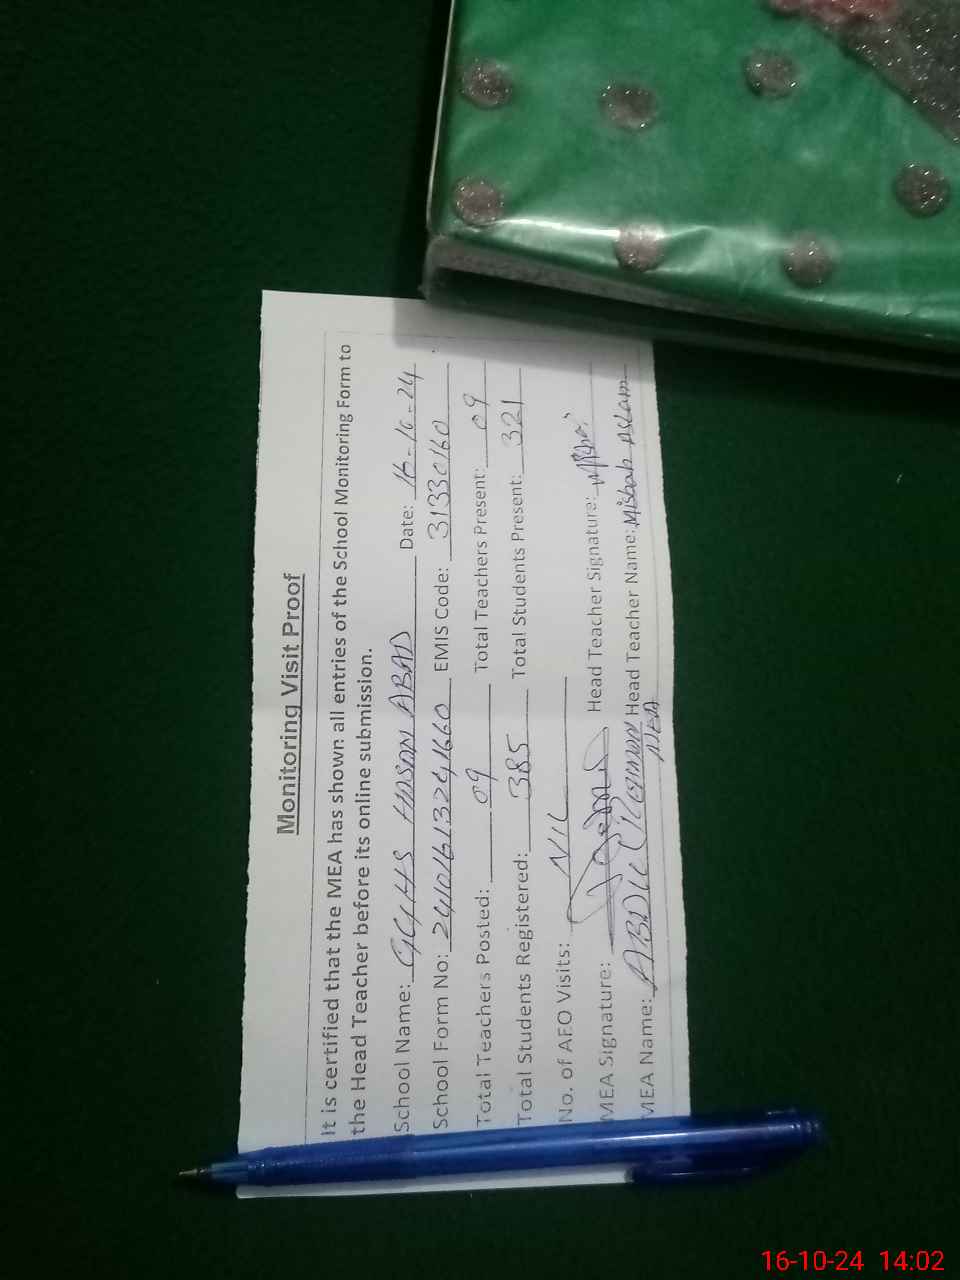 Monitoring Visit Proof
It is certified that the MEA has shown all entries of the School Monitoring Form to
the Head Teacher before its online submission.
School Name: GGHS HASAN ABAD Date: 16-10-24
School Form No: 24101613241660 EMIS Code: 31330160
Total Teachers Posted: 09 Total Teachers Present: 09
Total Students Registered: 385 Total Students Present: 321
No. of AEO Visits: NIL
MEA Signature: Head Teacher Signature:
MEA Name: ABDUL REHMAN Head Teacher Name: Misbah Aslam
MEA
16-10-24 14:02